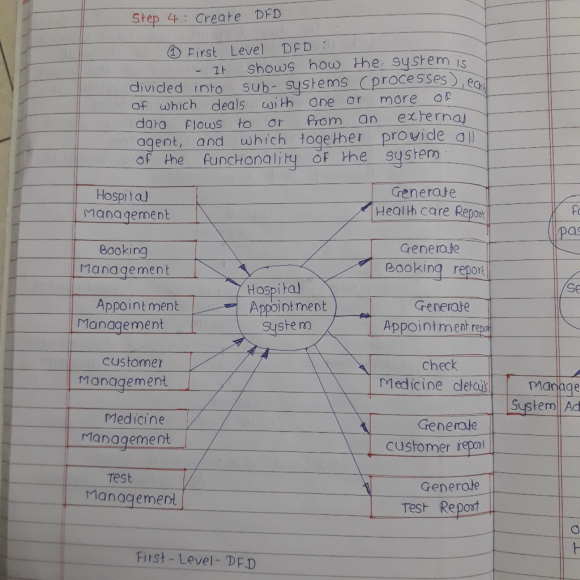 Step 4: Create DFD
① First Level DFD :
- It shows how the system is
divided into sub-systems (processes),
of which deals with one or more of
data flows to or from an external
agent, and which together provide all
of the functionality of the system
Hospital
Management
Booking
Management
Appointment
Management
customer
Management
Medicine
Management
Test
Management
Hospital
Appointment
System
Generate
Health care Report
Generate
Booking report
Generate
Appointment repor
check
Medicine details
Generate
customer report
Generate
Test Report
First-Level-DFD
pas
Manage
System Ad